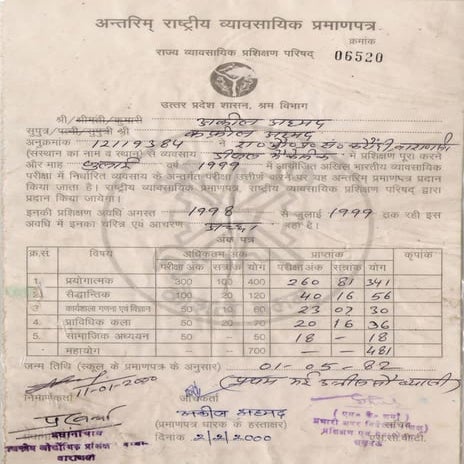 अन्तरिम् राष्ट्रीय व्यावसायिक प्रमाणपत्र
क्रमांक
राज्य व्यावसायिक प्रशिक्षण परिषद् 06520
उत्तर प्रदेश शासन, श्रम विभाग
श्री/श्रीमती/कुमारी अकील अहमद
सुपुत्र/पत्नी/सुपुत्री श्री
अनुक्रमांक 12119384 ने रा० औ० प्र० सं० करौंदी वाराणसी
(संस्थान का नाम व स्थान) से व्यवसाय डीजल मैकेनिक में प्रशिक्षण पूरा करने
और माह जुलाई वर्ष 1999 में आयोजित अखिल भारतीय व्यावसायिक
परीक्षा में निर्धारित व्यवसाय के अन्तर्गत परीक्षा उत्तीर्ण करने पर यह अन्तरिम प्रमाणपत्र प्रदान
किया जाता है। राष्ट्रीय व्यावसायिक प्रमाणपत्र, राष्ट्रीय व्यावसायिक प्रशिक्षण परिषद् द्वारा
प्रदान किया जायेगा।
इनकी प्रशिक्षण अवधि अगस्त 1998 से जुलाई 1999 तक रही इस
अवधि में इनका चरित्र एवं आचरण अच्छा रहा है।
अंक पत्र
क्र.सं. विषय अधिकतम अंक प्राप्तांक कृपांक
परीक्षा अंक सत्रांक योग परीक्षा अंक सत्रांक योग
1. प्रयोगात्मक 300 100 400 260 81 341
2. सैद्धान्तिक 100 20 120 40 16 56
3. कार्यशाला गणना एवं विज्ञान 50 10 60 23 07 30
4. प्राविधिक कला 50 20 70 20 16 36
5. सामाजिक अध्ययन 50 - 50 18 - 18
महायोग - - 700 - - 481
जन्म तिथि (स्कूल के प्रमाणपत्र के अनुसार) 01-05-82
11-01-2000 (प्रथम मई उन्नीस सौ बयासी)
निर्माणकर्ता जाँचकर्ता
अकील अहमद
प्रधानाचार्य (प्रमाणपत्र धारक के हस्ताक्षर)
दिनांक 2/2/2000
वाराणसी